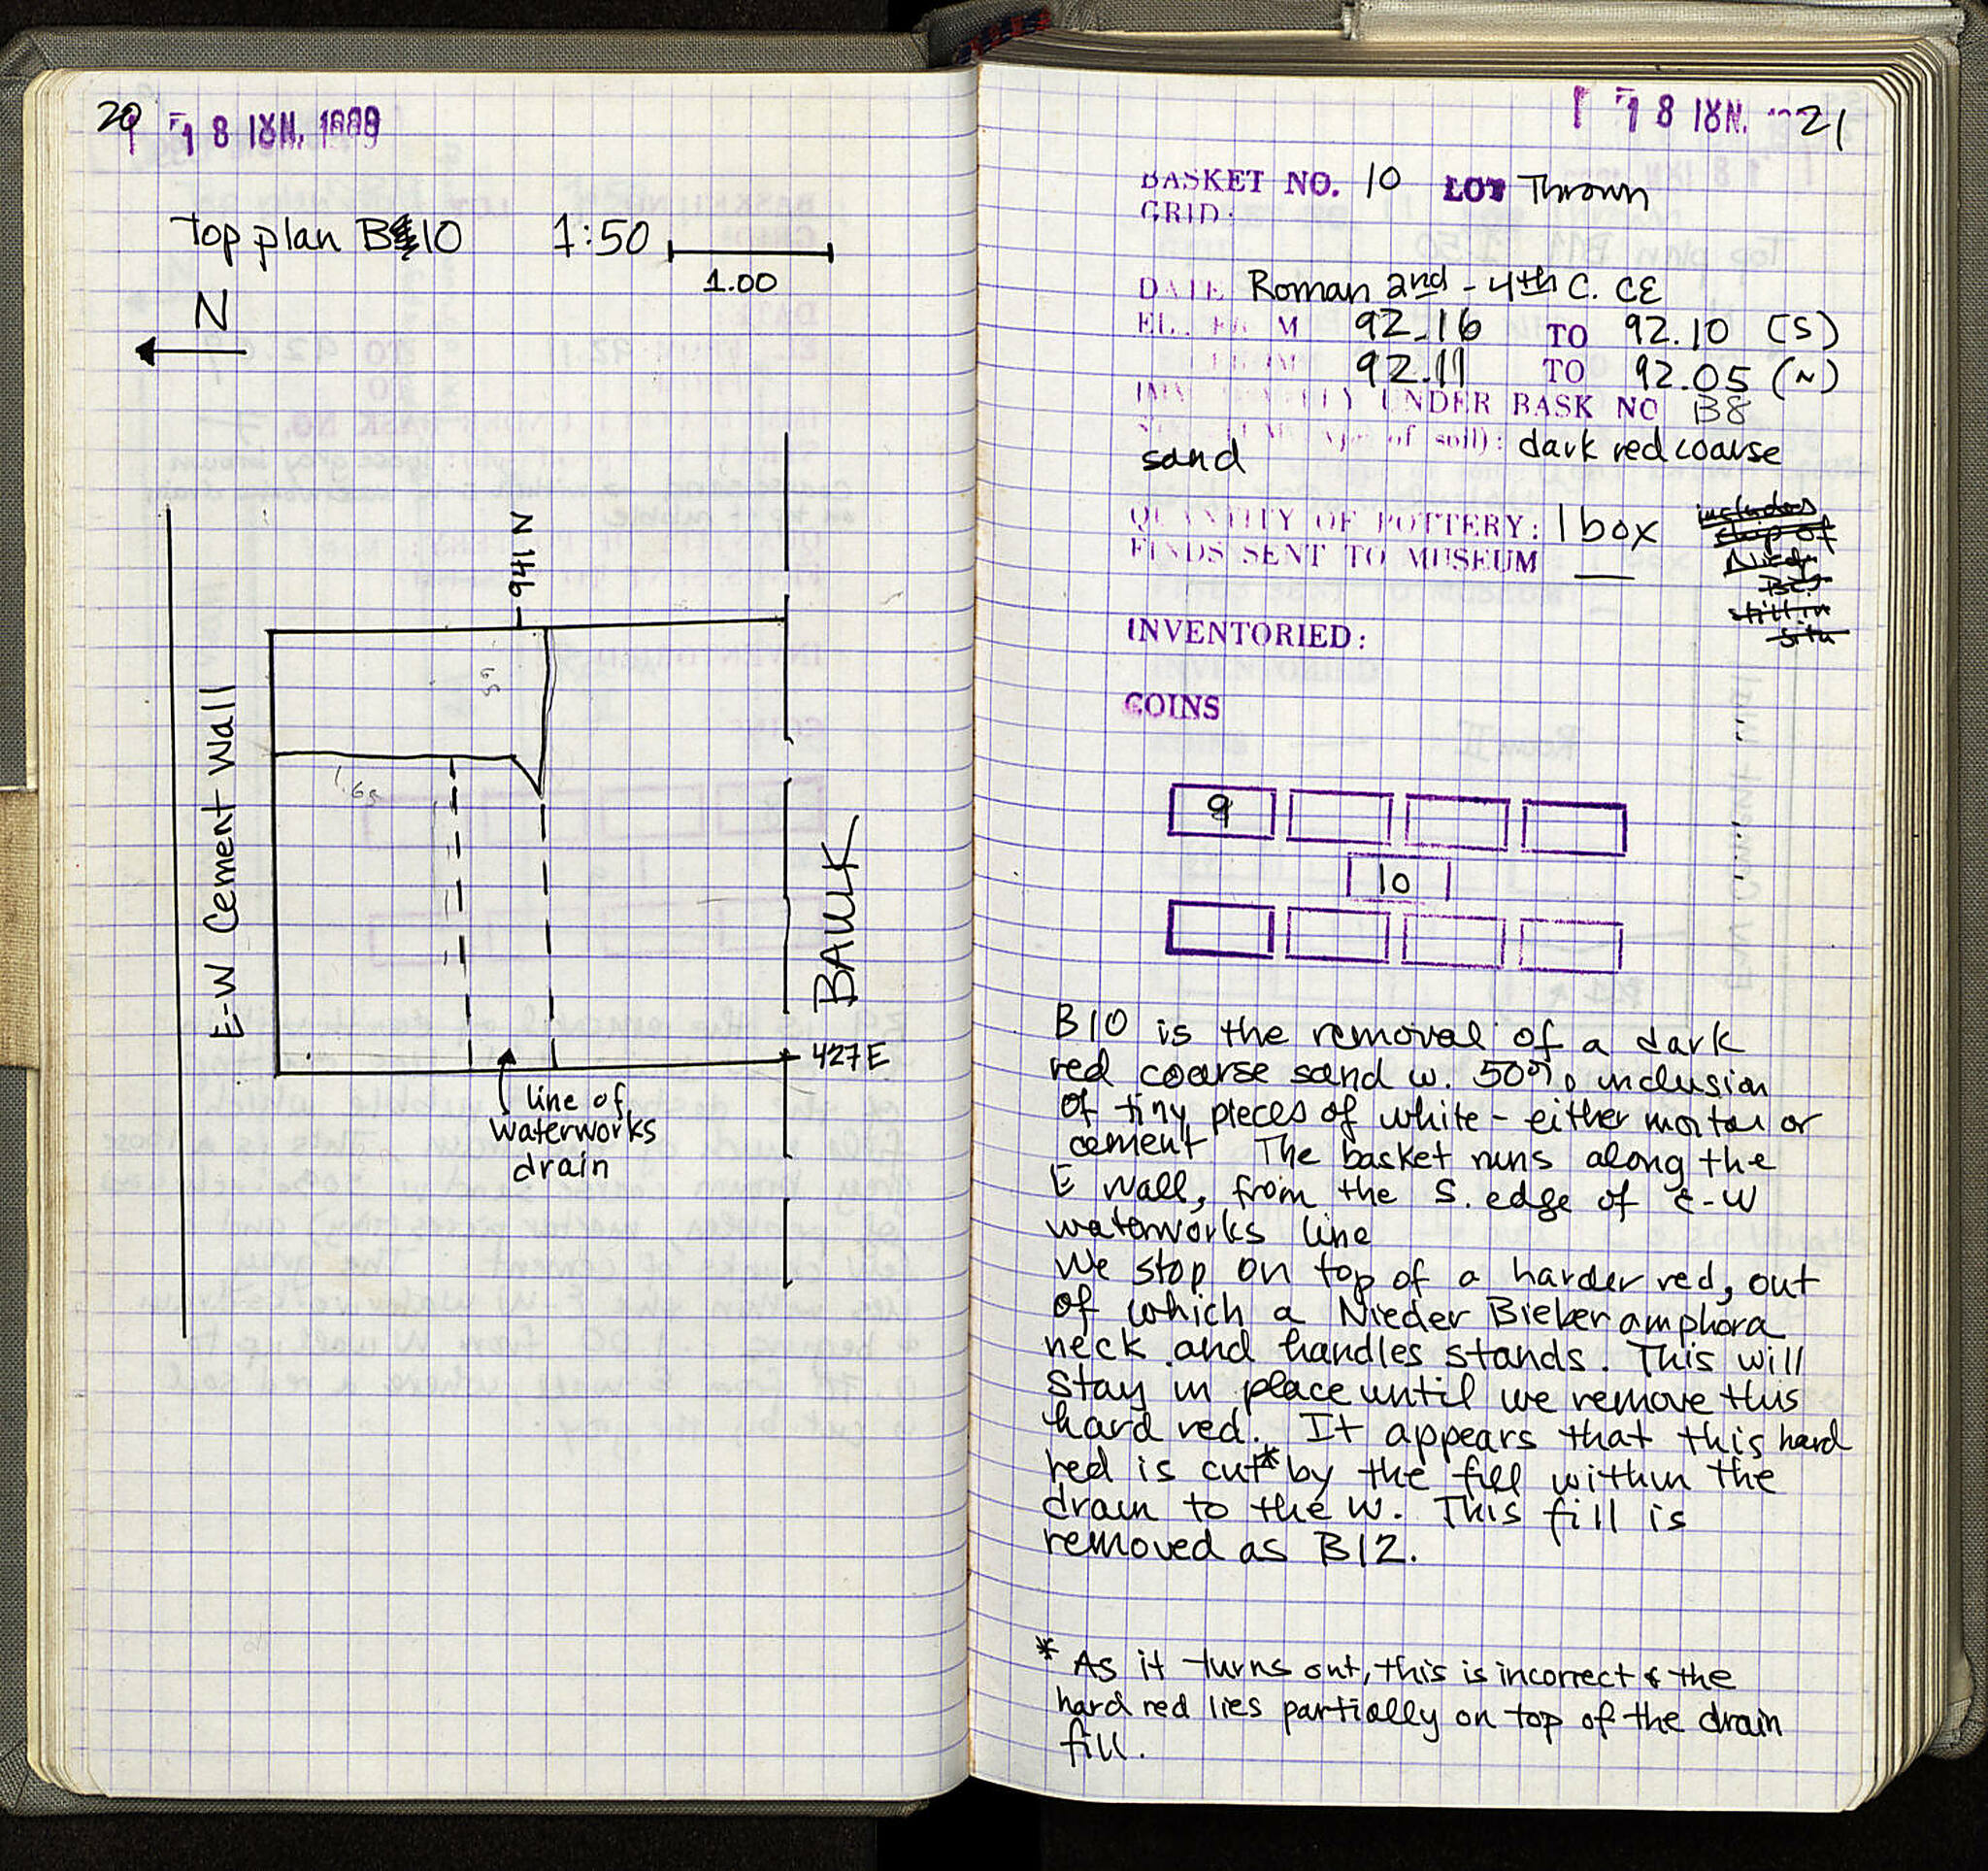 20
18 ΙΟΥΝ. 1999
Top plan B10 1:50
1.00
N
941 N
.65
1.65
E-W Cement Wall
BAULK
427 E
line of
waterworks
drain
18 ΙΟΥΝ. 21
BASKET NO. 10 LOT Thrown
GRID:
DATE Roman 2nd - 4th C. CE
EL. FR M 92.16 TO 92.10 (S)
92.11 TO 92.05 (N)
UNDER BASK NO B8
of soil): dark red coarse
sand
QUANTITY OF POTTERY: 1 box
includes
chip of
Nied.
Bie.
still in
situ
FINDS SENT TO MUSEUM —
INVENTORIED:
COINS
9
10
B10 is the removal of a dark
red coarse sand w. 50% inclusion
of tiny pieces of white - either mortar or
cement. The basket runs along the
E wall, from the S. edge of E-W
waterworks line
We stop on top of a harder red, out
of which a Nieder Bieber amphora
neck and handles stands. This will
stay in place until we remove this
hard red. It appears that this hard
red is cut* by the fill within the
drain to the W. This fill is
removed as B12.
* As it turns out, this is incorrect & the
hard red lies partially on top of the drain
fill.